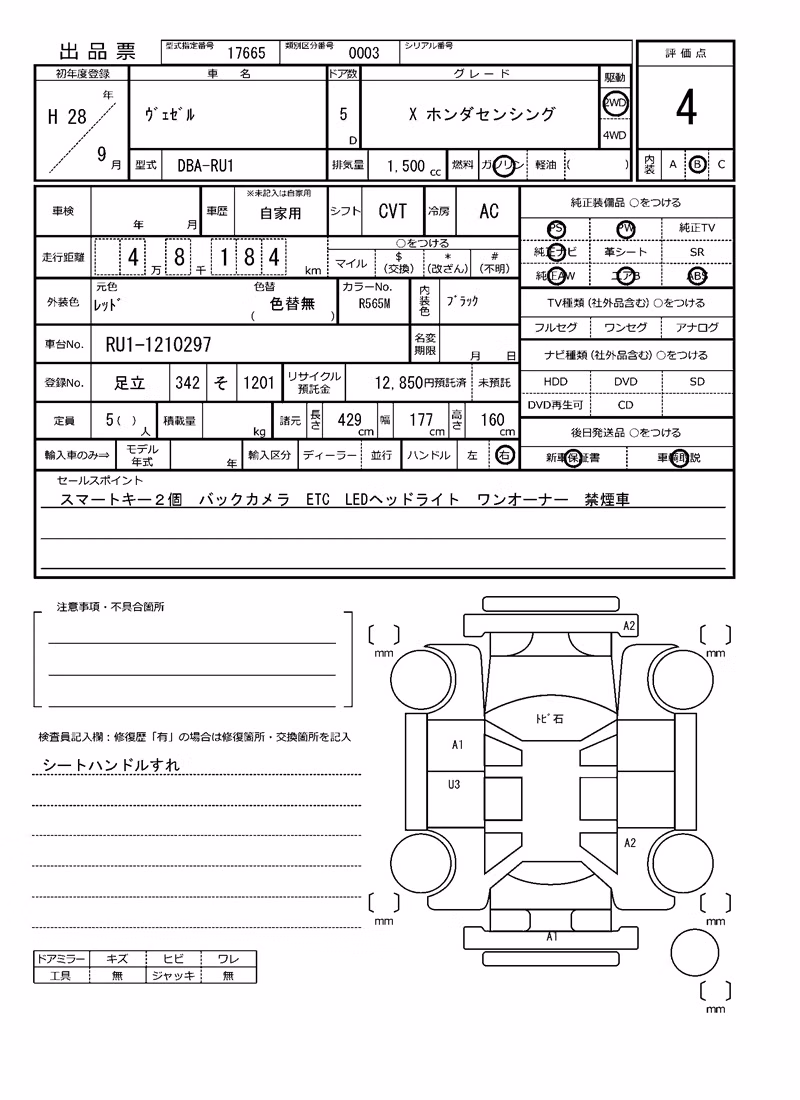 出品票
型式指定番号 17665 類別区分番号 0003 シリアル番号
初年度登録 車 名 ドア数 グレード 駆動 評価点
H 28 年 9 月 ヴェゼル 5 D X ホンダセンシング 2WD 4WD 4
型式 DBA-RU1 排気量 1,500 cc 燃料 ガソリン 軽油 ( ) 内装 A B C
車検 年 月 車歴 ※未記入は自家用 自家用 シフト CVT 冷房 AC 純正装備品 ○をつける
PS PW 純正TV
走行距離 4 万 8 千 1 8 4 km ○をつける
マイル $ (交換) * (改ざん) # (不明)
純正ナビ 革シート SR
純正AW エアB ABS
外装色 元色 レッド 色替 ( 色替無 ) カラーNo. R565M 内装色 ブラック
TV種類 (社外品含む) ○をつける
フルセグ ワンセグ アナログ
車台No. RU1-1210297 名変期限 月 日
ナビ種類 (社外品含む) ○をつける
登録No. 足立 342 そ 1201 リサイクル預託金 12,850円預託済 未預託
HDD DVD SD
DVD再生可 CD
定員 5 ( ) 人 積載量 kg 諸元 長さ 429 cm 幅 177 cm 高さ 160 cm
後日発送品 ○をつける
輸入車のみ⇒ モデル年式 年 輸入区分 ディーラー 並行 ハンドル 左 右
新車保証書 車輌取説
セールスポイント
スマートキー2個 バックカメラ ETC LEDヘッドライト ワンオーナー 禁煙車
注意事項・不具合箇所
A2
mm mm
トビ石
検査員記入欄：修復歴「有」の場合は修復箇所・交換箇所を記入
A1
シートハンドルすれ
U3
A2
mm mm
A1
ドアミラー キズ ヒビ ワレ
工具 無 ジャッキ 無
mm